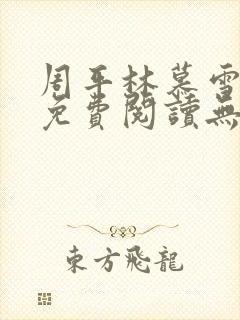 周平林慕雪
免費閱讀無
東方飛龍